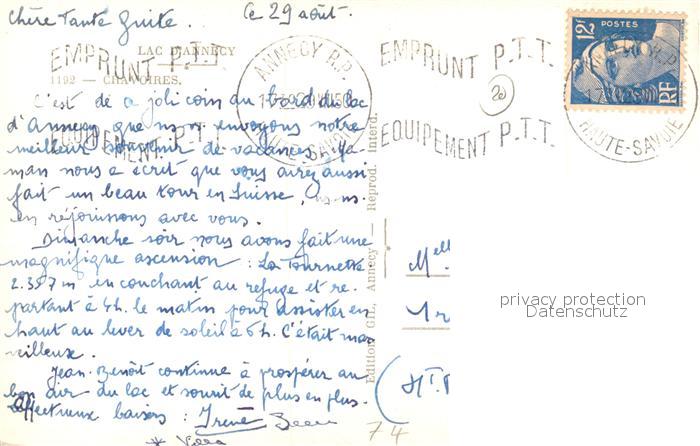 Chère Tante Guite. Ce 29 août.
LAC D'ANNECY
1192 - CHAVOIRES.
EMPRUNT P.T.T.
EQUIPEMENT P.T.T.
ANNECY R.P.
HAUTE-SAVOIE
EMPRUNT P.T.T.
EQUIPEMENT P.T.T.
20
12F POSTES
RF
HAUTE-SAVOIE
C'est de ce joli coin du bord du lac
d'Annecy que nous envoyons notre
meilleur souvenir de vacances. Ma-
man nous a écrit que vous aviez aussi
fait un beau tour en Suisse, nous
en réjouissons avec vous.
Dimanche soir nous avons fait une
magnifique ascension : La Tournette
2.357 m en couchant au refuge et re-
partant à 4h. le matin pour assister en
haut au lever de soleil à 6h. C'était mer
veilleux.
Jean-Benoît continue à prospérer au
bon air du lac et sourit de plus en plus.
affectueux baisers : Irène
Edition GIL, Annecy — Reprod. Interd.
Mell
74
privacy protection
Datenschutz